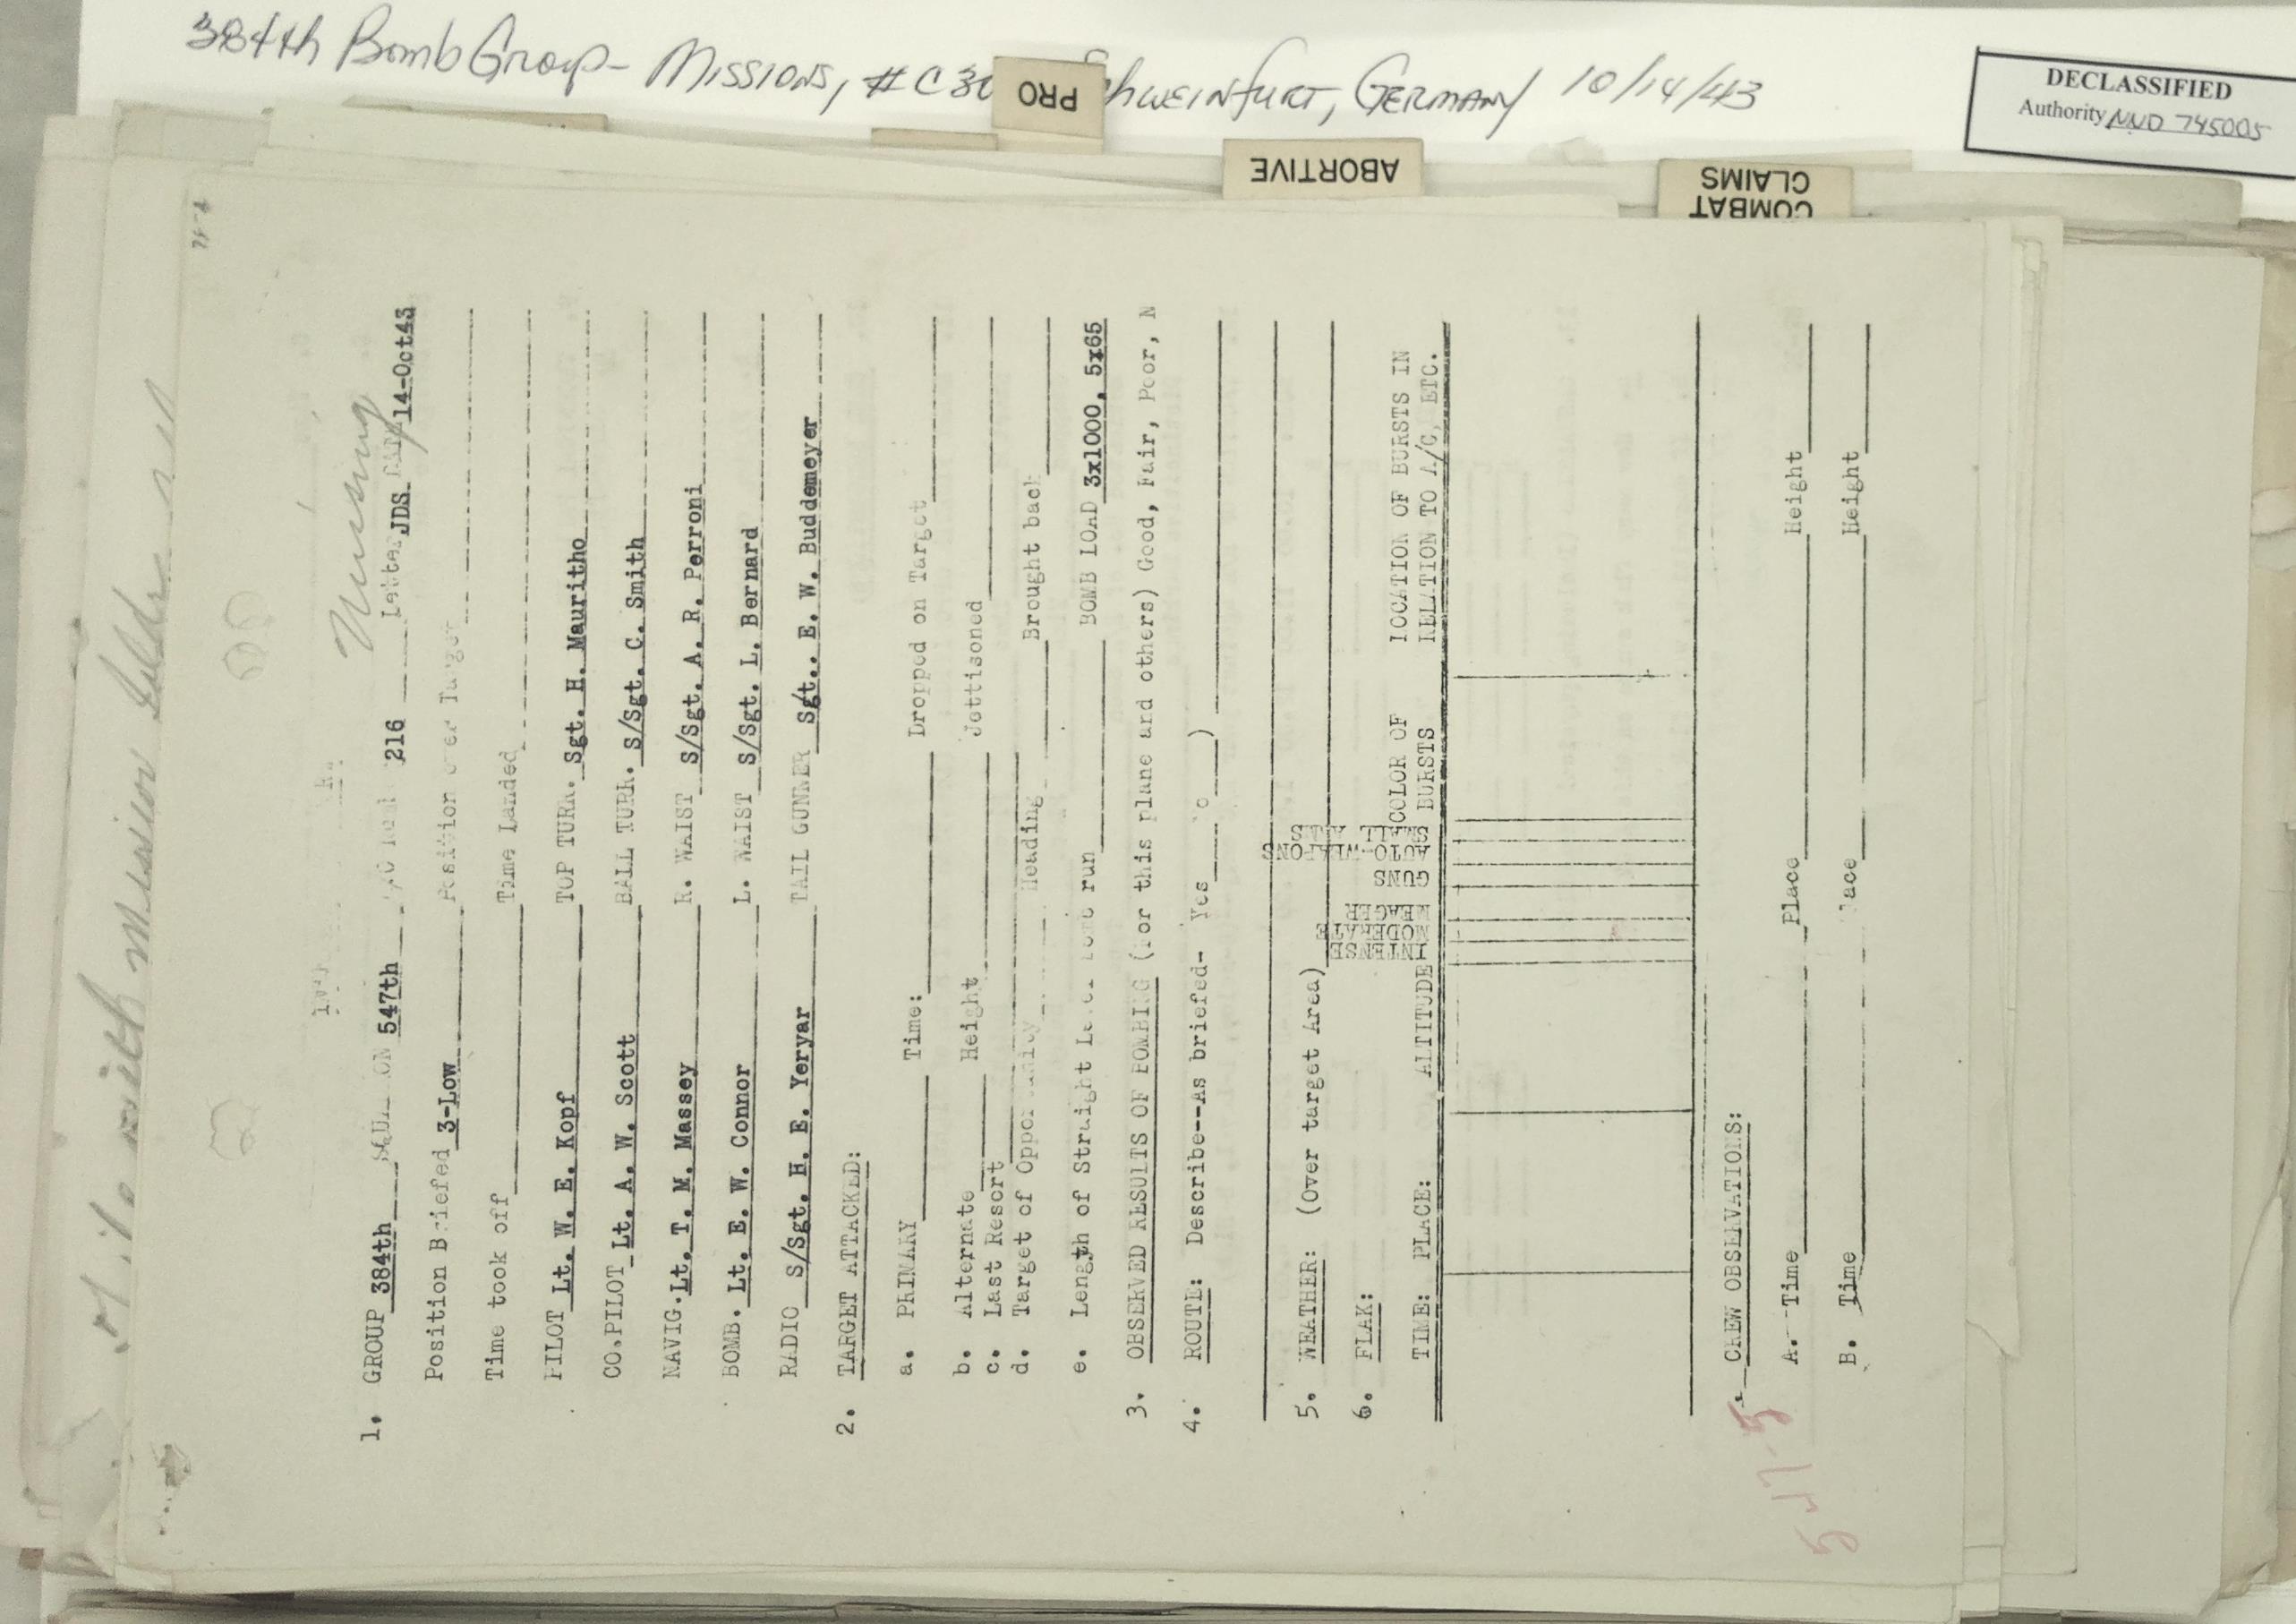 384th Bomb Group - Missions, #C30 Schweinfurt, Germany 10/14/43
DECLASSIFIED
Authority NND 745005
PRO
ABORTIVE
COMBAT
CLAIMS
file with mission folder
Missing
1. GROUP 384th 547th 216 Letter JDS 14-Oct43
Position Briefed 3-Low Position over Target
Time took off Time Landed
PILOT Lt. W. E. Kopf TOP TURR. Sgt. H. Mauritho
CO.PILOT Lt. A. W. Scott BALL TURR. S/Sgt. C. Smith
NAVIG. Lt. T. M. Massey R. WAIST S/Sgt. A. R. Perroni
BOMB. Lt. E. W. Connor L. WAIST S/Sgt. L. Bernard
RADIO S/Sgt. H. E. Yeryar TAIL GUNNER Sgt. E. W. Buddemeyer
2. TARGET ATTACKED:
a. PRIMARY Time: Dropped on Target
b. Alternate Height Jettisoned
c. Last Resort
d. Target of Opportunity Heading Brought back
e. Length of Straight Level Bomb run BOMB LOAD 3x1000, 5x65
3. OBSERVED RESULTS OF BOMBING (for this plane and others) Good, Fair, Poor, N
4. ROUTE: Describe--As briefed- Yes No )
5. WEATHER: (Over target Area)
6. FLAK:
TIME: PLACE: ALTITUDE INTENSE MODERATE MEAGER GUNS AUTO-WEAPONS SMALL ARMS COLOR OF BURSTS LOCATION OF BURSTS IN RELATION TO A/C, ETC.
CREW OBSERVATIONS:
A. Time Place Height
B. Time Place Height